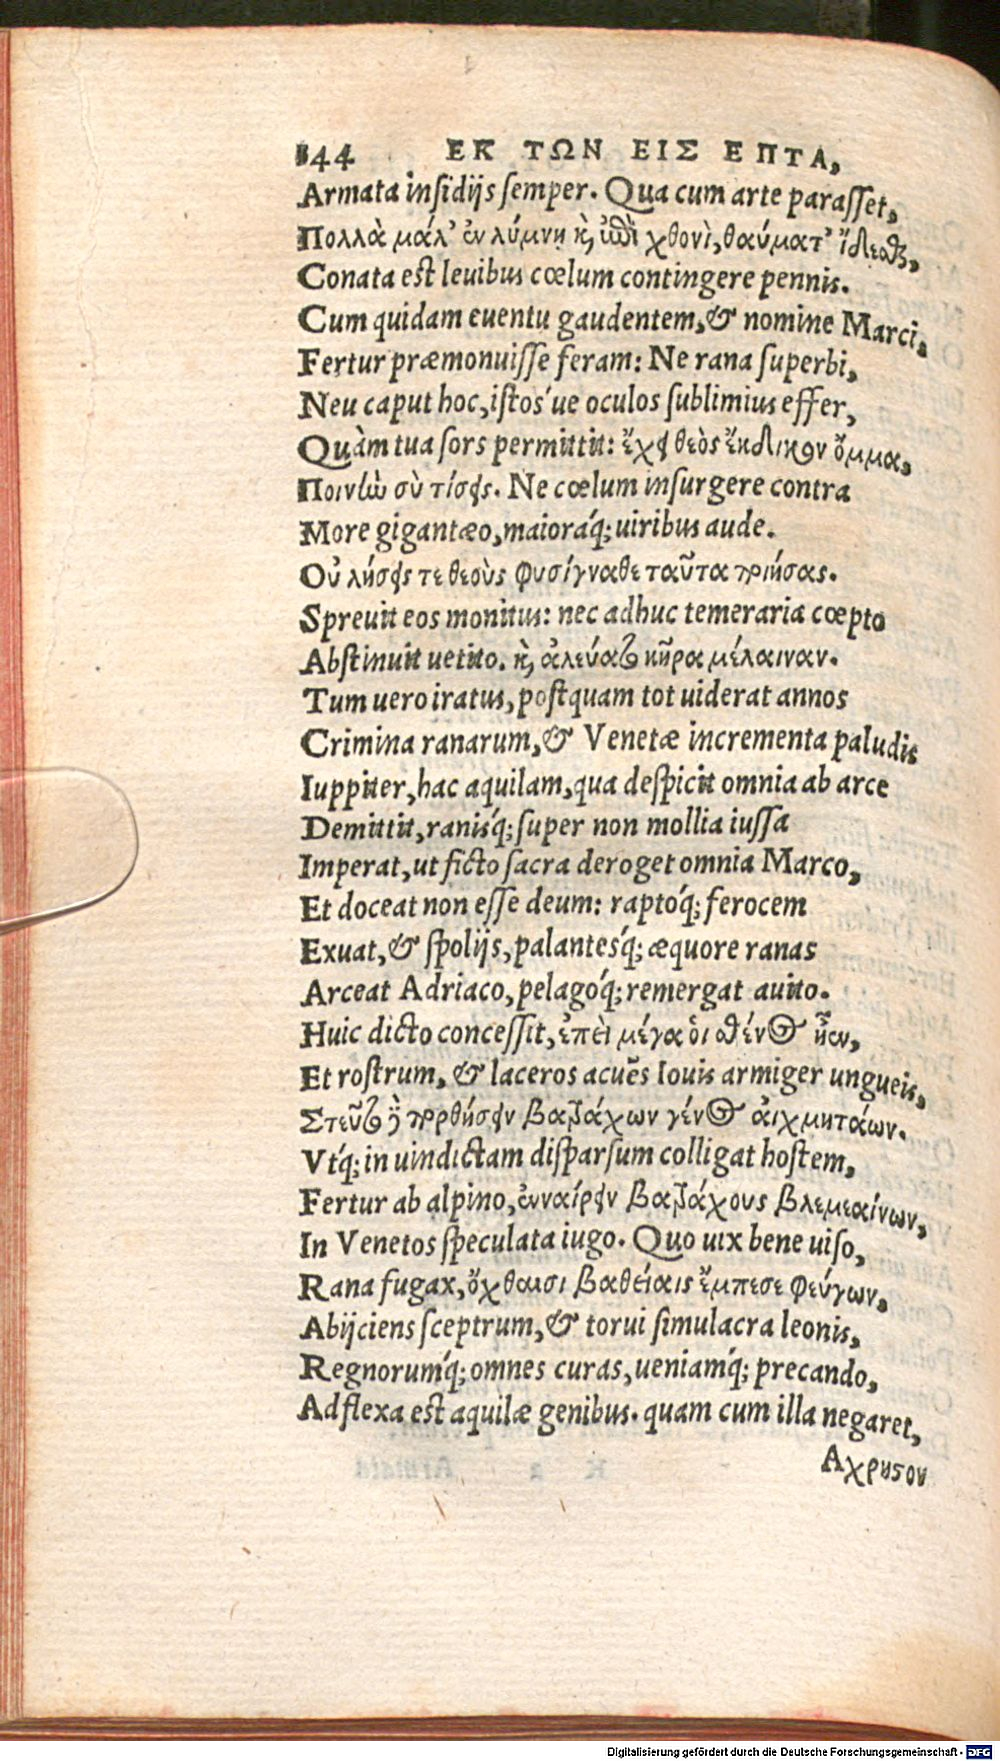 144 ΕΚ ΤΩΝ ΕΙΣ ΕΠΤΑ,
Armata insidijs semper. Qua cum arte parasset,
Πολλὰ μάλ' ἐν λύμνῃ καὶ ἐπὶ χθονὶ, θαύματ' ἴδεσθε,
Conata est leuibus cœlum contingere pennis.
Cum quidam euentu gaudentem, & nomine Marci,
Fertur præmonuisse feram: Ne rana superbi,
Neu caput hoc, istos'ue oculos sublimius effer,
Quàm tua sors permittit: ἔχει θεὸς ἔκδικον ὄμμα,
Ποινὴν σὺ τίσεις. Ne cœlum insurgere contra
More gigantæo, maioráq; uiribus aude.
Οὐ λήσεις τε θεοὺς φυσίγναθε ταῦτα ποιήσας.
Spreuit eos monitus: nec adhuc temeraria cœpto
Abstinuit uetito. καὶ ἀλεύατο κῆρα μέλαιναν.
Tum uero iratus, postquam tot uiderat annos
Crimina ranarum, & Venetæ incrementa paludis
Iuppiter, hac aquilam, qua despicit omnia ab arce
Demittit, ranisq́; super non mollia iussa
Imperat, ut ficto sacra deroget omnia Marco,
Et doceat non esse deum: raptoq́; ferocem
Exuat, & spolijs, palantesq́; æquore ranas
Arceat Adriaco, pelagoq́; remergat auito.
Huic dicto concessit, ἐπεὶ μέγα οἱ σθένος ἦεν,
Et rostrum, & laceros acuẽs Iouis armiger ungueis,
Στεῦτο δὲ πορθήσειν βατράχων γένος αἰχμητάων.
Vtq́; in uindictam disparsum colligat hostem,
Fertur ab alpino, ἐνναίρειν βατράχους βλεμεαίνων,
In Venetos speculata iugo. Quo uix bene uiso,
Rana fugax, ὄχθαισι βαθείαις ἔμπεσε φεύγων,
Abijciens sceptrum, & torui simulacra leonis,
Regnorumq́; omnes curas, ueniamq́; precando,
Adflexa est aquilæ genibus. quam cum illa negaret,
Αχρηστον
Digitalisierung gefördert durch die Deutsche Forschungsgemeinschaft - DFG